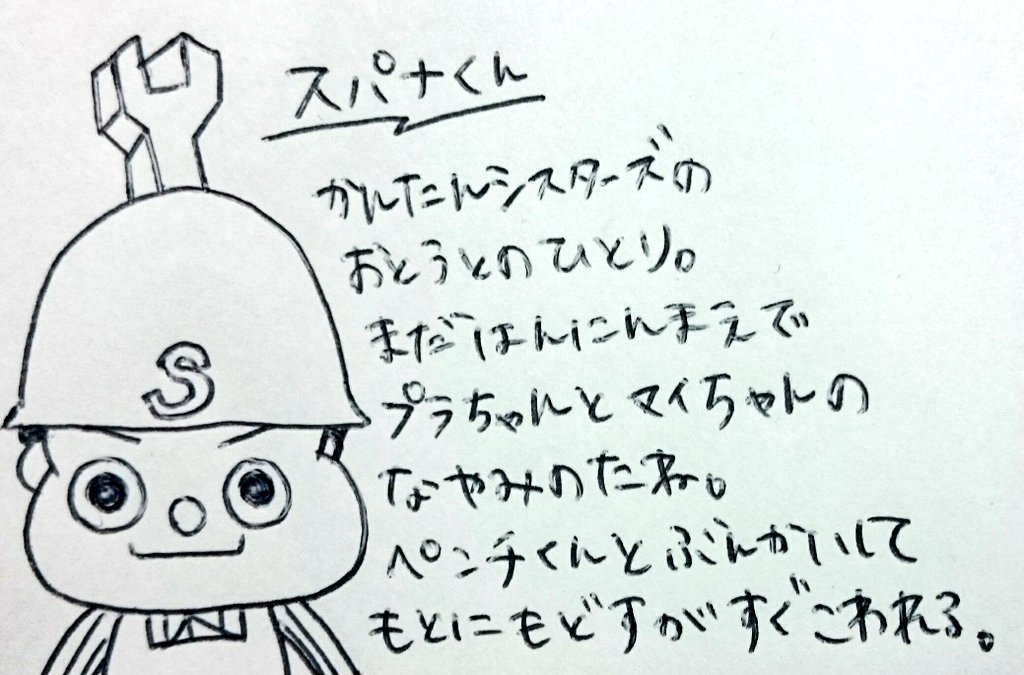 スパナくん
かんたんシスターズの
おとうとのひとり。
まだはんにんまえで
プラちゃんとマイちゃんの
なやみのたね。
ペンチくんとぶんかいして
もとにもどすがすぐこわれる。
S